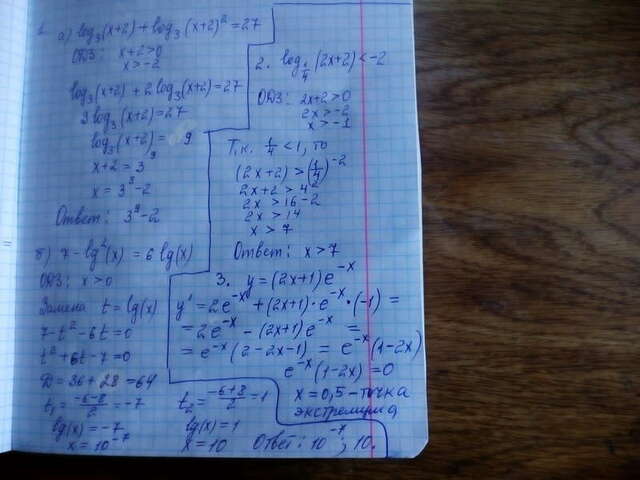 1. а) log₃(x+2) + log₃(x+2)² = 27
ОДЗ: x+2>0
x>-2
log₃(x+2) + 2log₃(x+2) = 27
3log₃(x+2) = 27
log₃(x+2) = 9
x+2 = 3⁹
x = 3⁹-2
Ответ: 3⁹-2
б) 7 - lg²(x) = 6 lg(x)
ОДЗ: x>0
Замена t = lg(x)
7-t²-6t=0
t²+6t-7=0
D=36+28=64
t₁=(-6-8)/2=-7 t₂=(-6+8)/2=1
lg(x)=-7 lg(x)=1
x=10⁻⁷ x=10 Ответ: 10⁻⁷; 10.
2. log_1/4 (2x+2) < -2
ОДЗ: 2x+2>0
2x>-2
x>-1
Т.к. 1/4 < 1, то
(2x+2) > (1/4)⁻²
2x+2 > 4²
2x > 16-2
2x > 14
x > 7
Ответ: x>7
3. y=(2x+1)e⁻ˣ
y' = 2e⁻ˣ + (2x+1)·e⁻ˣ·(-1) =
= 2e⁻ˣ - (2x+1)e⁻ˣ =
= e⁻ˣ(2-2x-1) = e⁻ˣ(1-2x)
e⁻ˣ(1-2x)=0
x=0,5-точка
экстремума